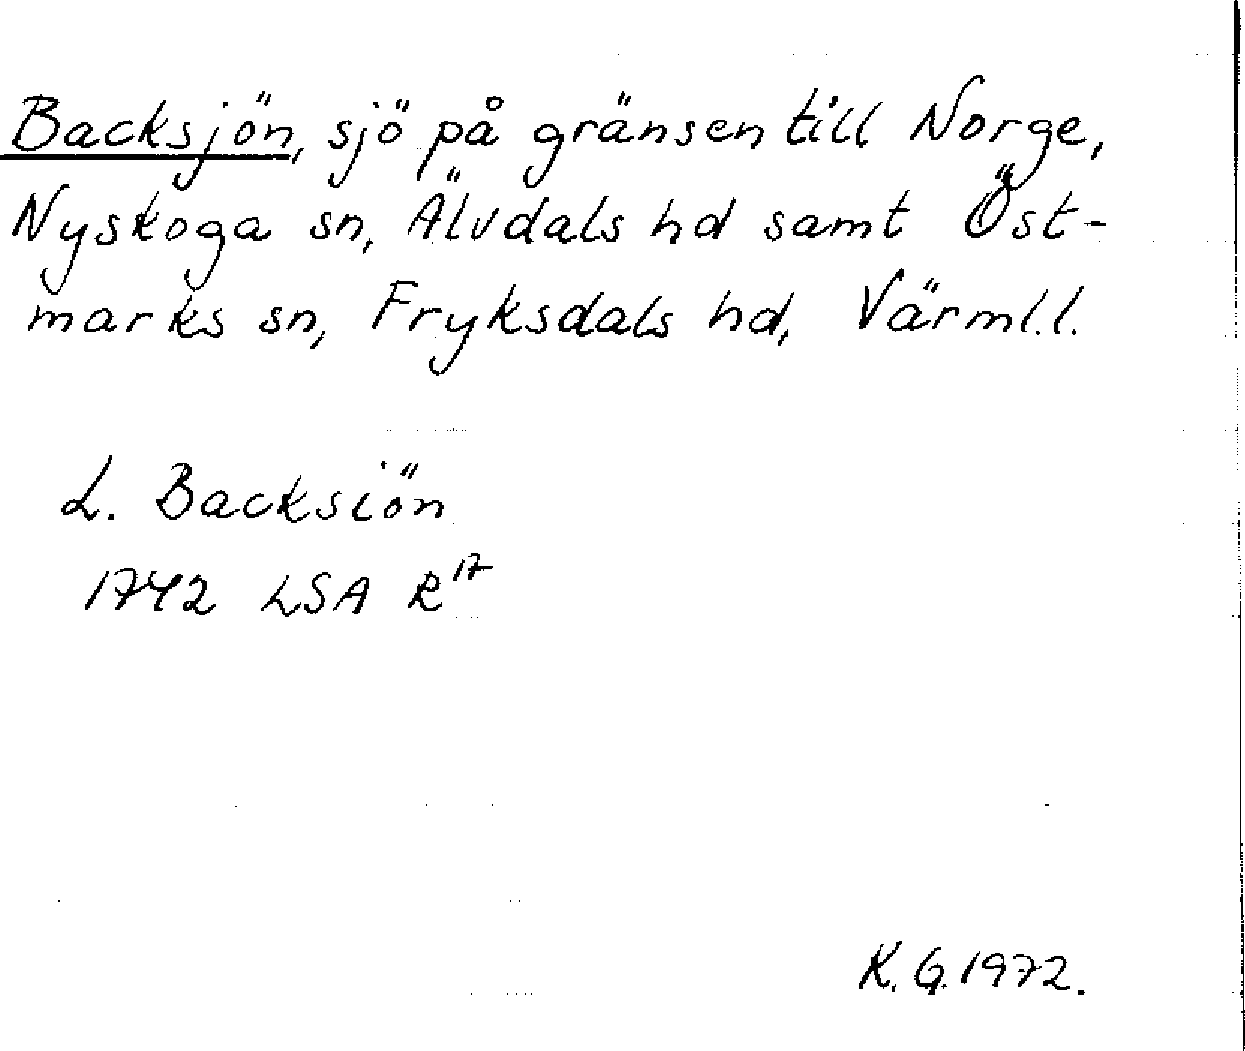 Backsjön, sjö på gränsen till Norge,
Nyskoga sn, Älvdals hd samt Öst-
marks sn, Fryksdals hd, Värml.l.
L. Backsiön
1742 LSA R17
K.G. 1972.